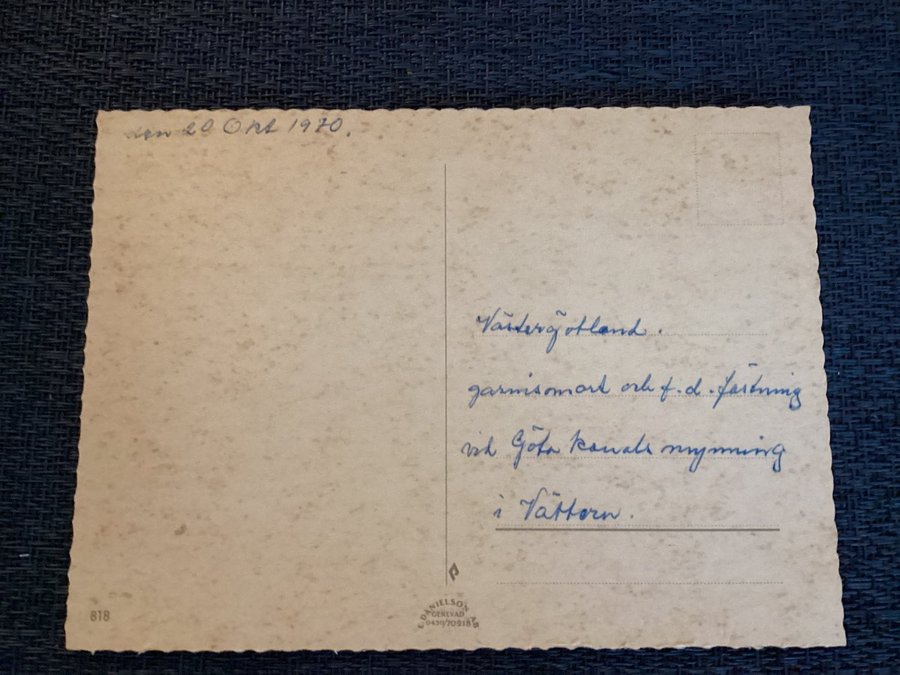 den 20 Okt 1970.
Västergötland.
garnisonort och f.d. fästning
vid Göta kanals mynning
i Vättern.
818
E. DANIELSON AB
GENEVAD
0430/70218